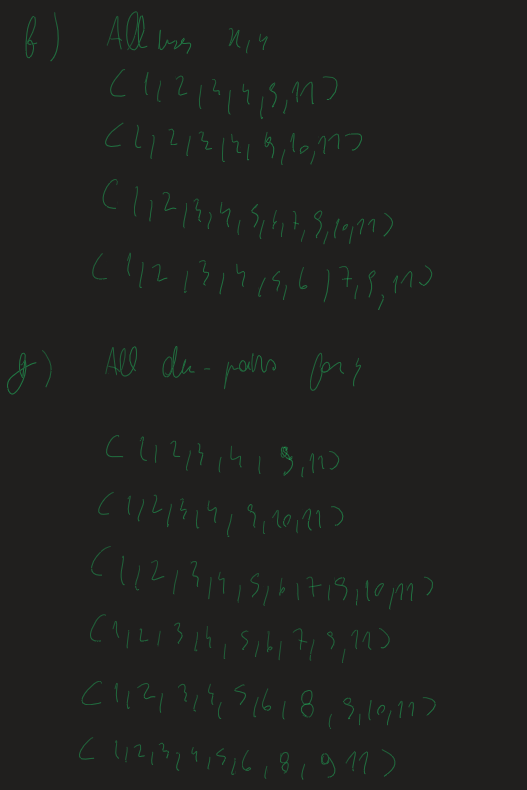 f) All uses x, y
(1,2,3,4,9,11)
(1,2,3,4,9,10,11)
(1,2,3,4,5,6,7,9,10,11)
(1,2,3,4,5,6,7,9,11)
g) All du-paths for y
(1,2,3,4,9,11)
(1,2,3,4,9,10,11)
(1,2,3,4,5,6,7,9,10,11)
(1,2,3,4,5,6,7,9,11)
(1,2,3,4,5,6,8,9,10,11)
(1,2,3,4,5,6,8,9,11)